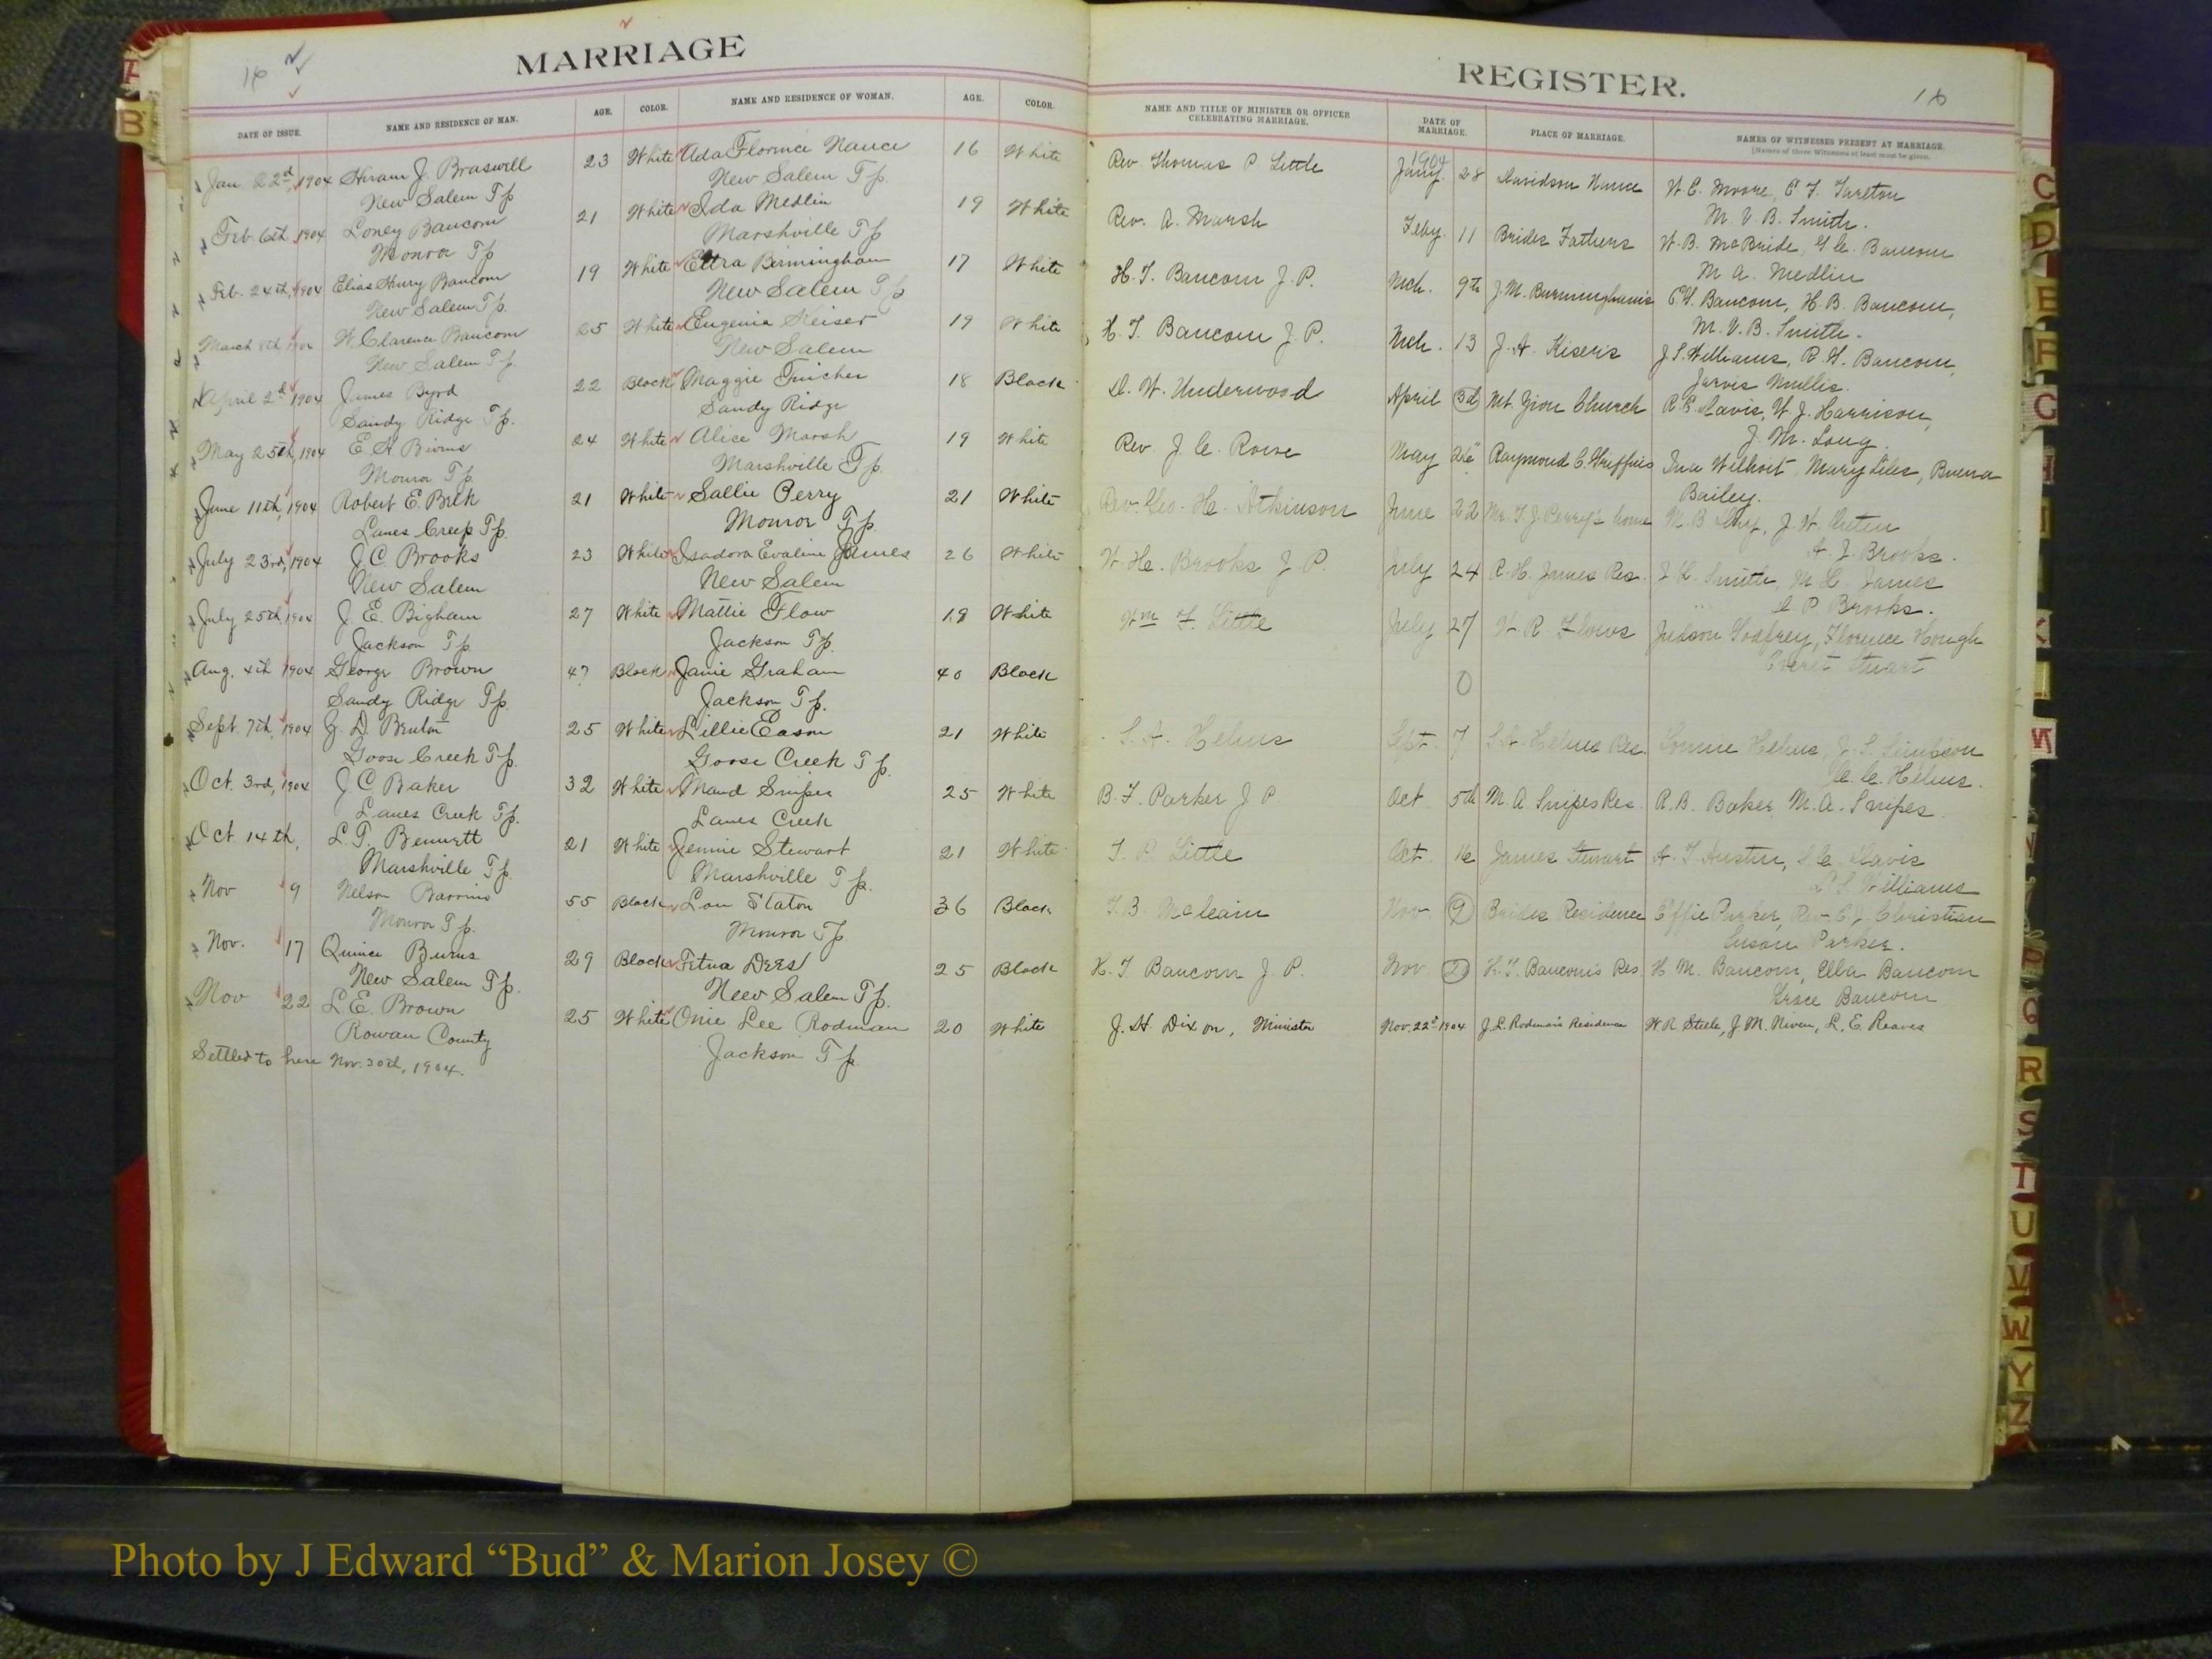 16
MARRIAGE
DATE OF ISSUE. NAME AND RESIDENCE OF MAN. AGE. COLOR. NAME AND RESIDENCE OF WOMAN. AGE. COLOR.
Jan 22nd, 1904 Hiram J. Braswell 23 White Ada Florence Nance 16 White
New Salem Tp New Salem Tp.
Feb. 6th, 1904 Loney Baucom 21 White Ida Medlin 19 White
Monroe Tp Marshville Tp
Feb. 24th, 1904 Elias Henry Baucom 19 White Ettra Birmingham 17 White
New Salem Tp. New Salem Tp
March 8th 1904 W. Clarence Baucom 25 White Eugenia Keiser 19 White
New Salem Tp. New Salem
April 2d 1904 James Byrd 22 Black Maggie Funcher 18 Black
Sandy Ridge Tp. Sandy Ridge
May 25th, 1904 E. A. Bivins 24 White Alice Marsh 19 White
Monroe Tp. Marshville Tp.
June 11th, 1904 Robert E. Belk 21 White Sallie Perry 21 White
Lanes Creek Tp. Monroe Tp.
July 23rd, 1904 J. C. Brooks 23 White Isadora Evaline James 26 White
New Salem New Salem
July 25th, 1904 J. E. Bigham 27 White Mattie Flow 18 White
Jackson Tp. Jackson Tp.
Aug. 4th 1904 George Brown 47 Black Janie Graham 40 Black
Sandy Ridge Tp. Jackson Tp.
Sept. 7th, 1904 J. D. Benton 25 White Lillie Eason 21 White
Goose Creek Tp. Goose Creek Tp.
Oct. 3rd, 1904 J C Baker 32 White Maud Snipes 25 White
Lanes Creek Tp. Lanes Creek
Oct 14th, L. T. Bennett 21 White Jennie Stewart 21 White
Marshville Tp. Marshville Tp.
Nov 9 Nelson Barrino 55 Black Lou Staton 36 Black
Monroe Tp. Monroe Tp.
Nov. 17 Quince Burns 29 Black Fetna Dees 25 Black
New Salem Tp. New Salem Tp.
Nov 22 L. E. Brown 25 White Onie Lee Rodman 20 White
Rowan County Jackson Tp.
Settled to here Nov. 30th, 1904.
REGISTER.
16
NAME AND TITLE OF MINISTER OR OFFICER CELEBRATING MARRIAGE. DATE OF MARRIAGE. PLACE OF MARRIAGE. NAMES OF WITNESSES PRESENT AT MARRIAGE.
[Names of three Witnesses at least must be given.
1904
Rev Thomas P Little Jany. 28 Davidson Nance W. E. Moore, C. F. Tarlton
M. V. B. Smith.
Rev. A. Marsh Feby. 11 Brides Fathers W. B. McBride, Baucom
M A. Medlin
H. T. Baucom J. P. Mch. 9th J. M. Burmingham's Baucom, H. B. Baucom,
M. V. B. Smith.
H. T. Baucom J. P. Mch. 13 J. A. Kiser's J. S. Williams, R. H. Baucom,
Jarvis Mullis.
D. W. Underwood April 3d Mt. Zion Church R. E. Davis, W. J. Harrison,
J. M. Long.
Rev. J. C. Rowe May 26" Raymond C. Griffin's Ina Wilhoit, Mary Liles, Buena
Bailey.
Rev. Geo. H. Atkinson June 22 Mr. T. J. Perry's home M. B. J. W.
A. J. Brooks.
W. H. Brooks J. P. July 24 R. H. James Res. J. K. Smith, M. L. James
C. P. Brooks.
Wm F. Little July 27 W. R Flows Judson Godfrey, Florence Hough
Everet Stuart
0
S. A. Helms Sept. 7 S. A. Helms Res. Lonnie Helms, J. S. Simpson
C. C. Helms.
B. F. Parker J P Oct. 5th M. A. Snipes Res. R. B. Baker, M. A. Snipes.
T. P. Little Oct. 16 James Stewart A. T. Austin, Davis
L. S. Williams
T. B. McLain Nov. 9 Brides Residence Effie Parker, Rev. C. J. Christian
Susan Parker.
H. T. Baucom J. P. Nov. 20 H. T. Baucom's Res. H. M. Baucom, Ella Baucom
Grace Baucom
J. H. Dixon, Minister Nov. 22d 1904 J. L. Rodman's Residence W R Steele, J. M. Niven, L. E. Reaves
A
B
C
D
E
F
G
H
I
K
L
M
N
P
Q
R
S
T
U
V
W
Y
Z
Photo by J Edward “Bud” & Marion Josey ©